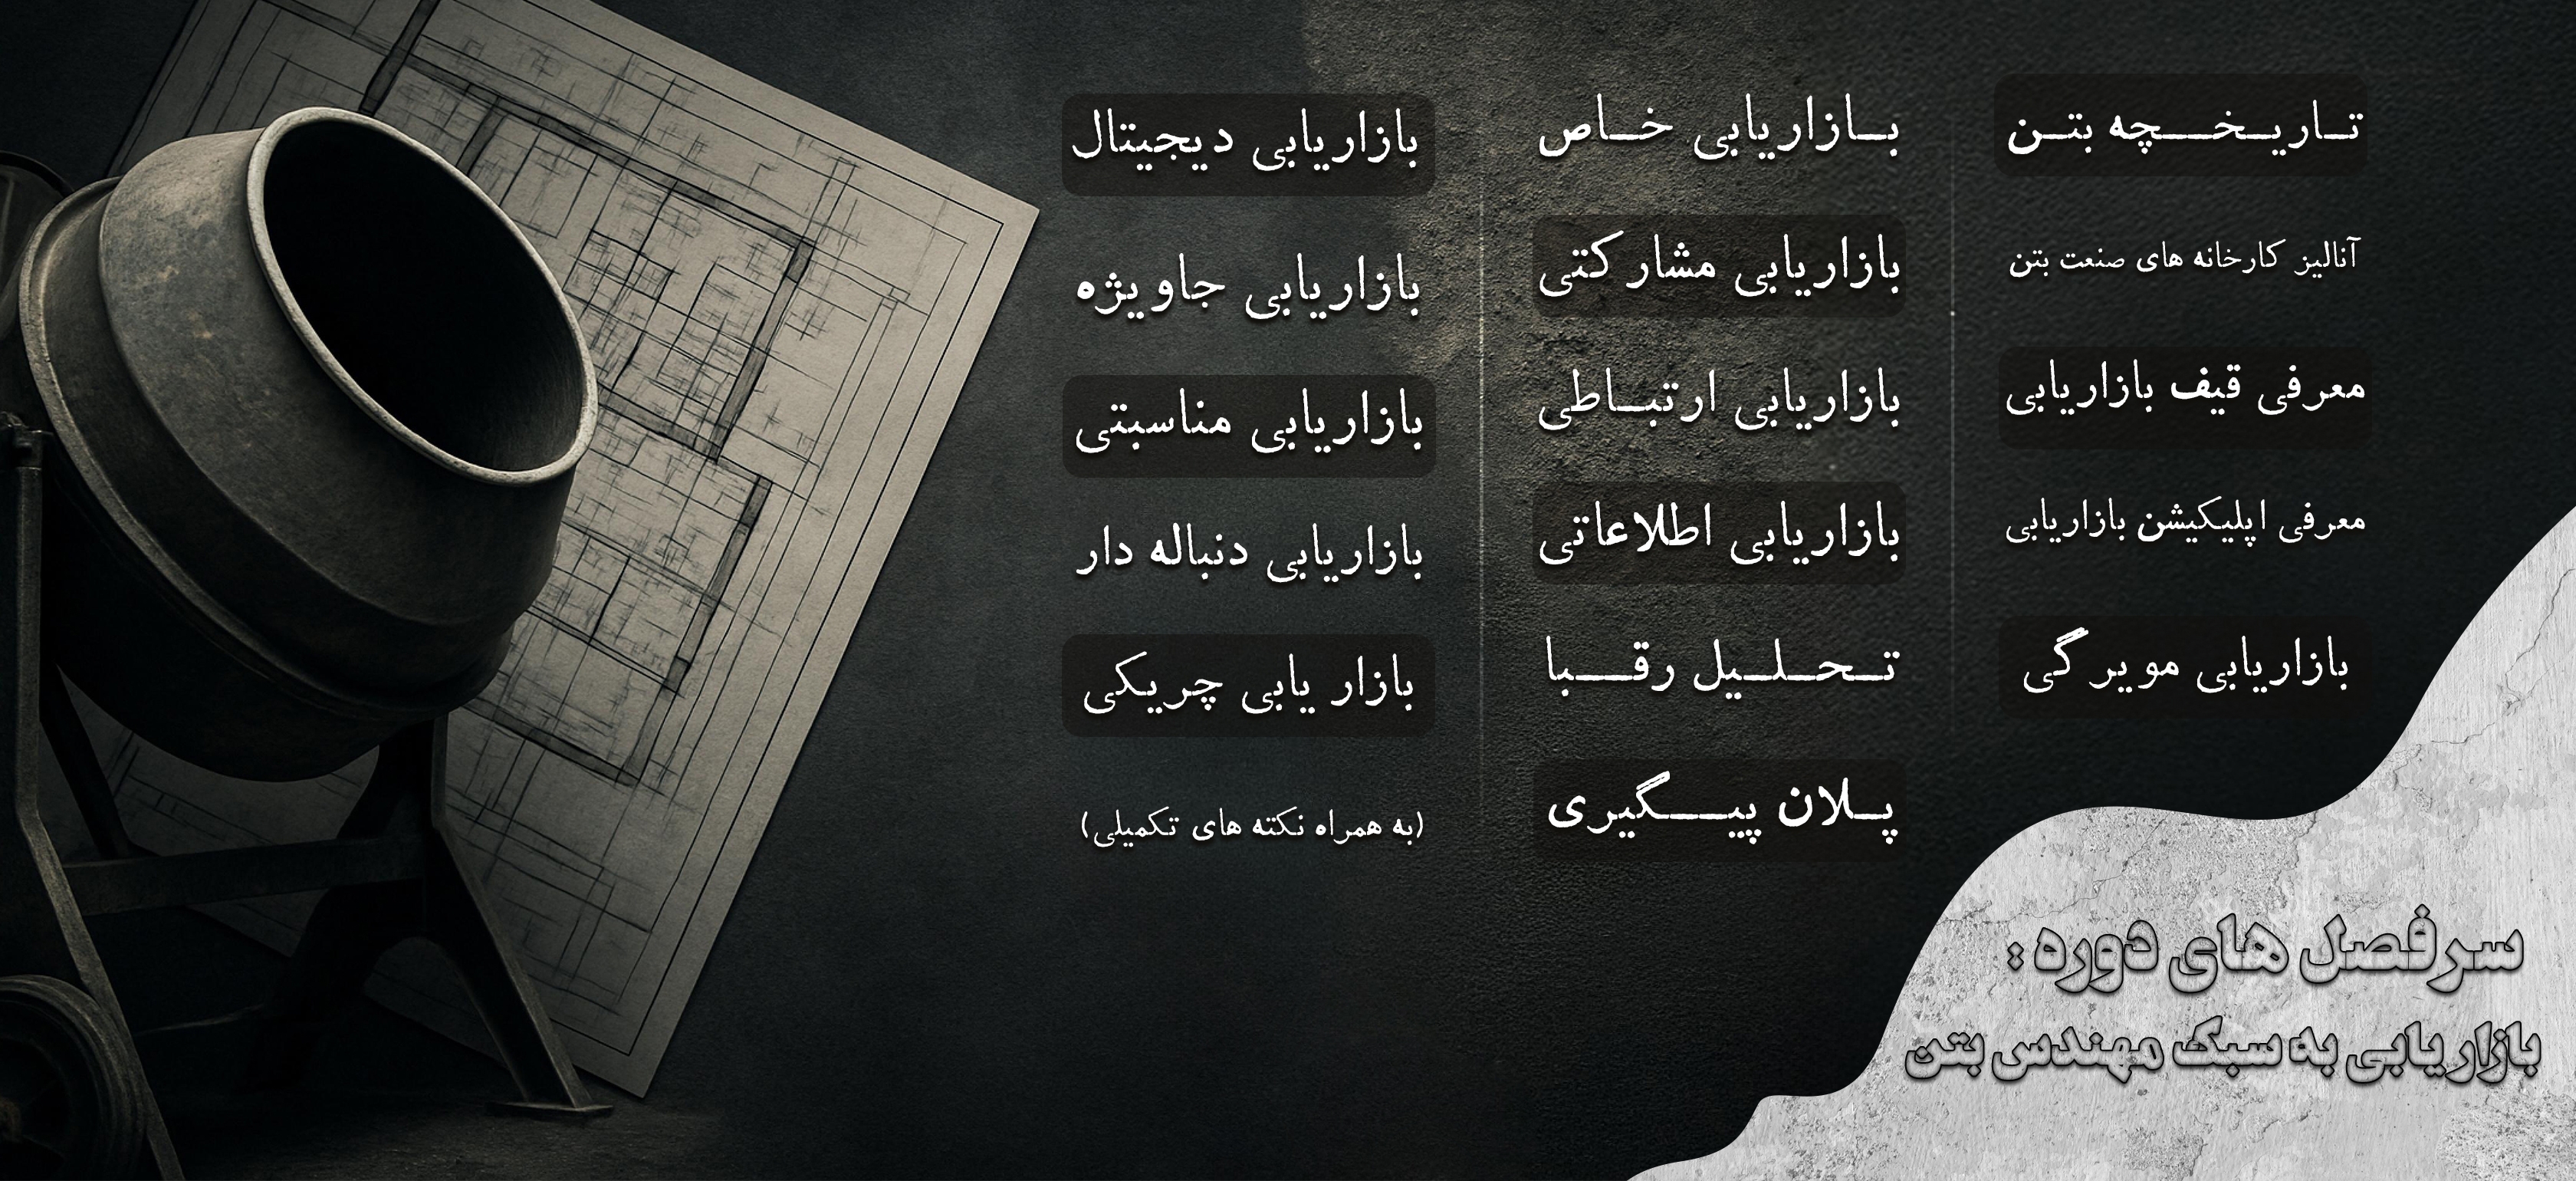 تاریخچه بتن
آنالیز کارخانه های صنعت بتن
معرفی قیف بازاریابی
معرفی اپلیکیشن بازاریابی
بازاریابی مویرگی
بازاریابی خاص
بازاریابی مشارکتی
بازاریابی ارتباطی
بازاریابی اطلاعاتی
تحلیل رقبا
پلان پیگیری
بازاریابی دیجیتال
بازاریابی جاویژه
بازاریابی مناسبتی
بازاریابی دنباله دار
بازار یابی چریکی
(به همراه نکته های تکمیلی)
سرفصل های دوره :
بازاریابی به سبک مهندس بتن